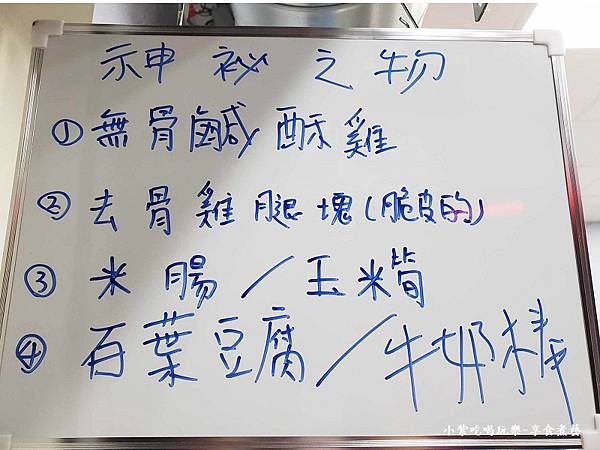 神祕之物
①無骨鹹酥雞
②去骨雞腿塊(脆皮的)
③米腸/玉米筍
④百葉豆腐/牛奶棒
小紫吃喝玩樂-享食煮藝